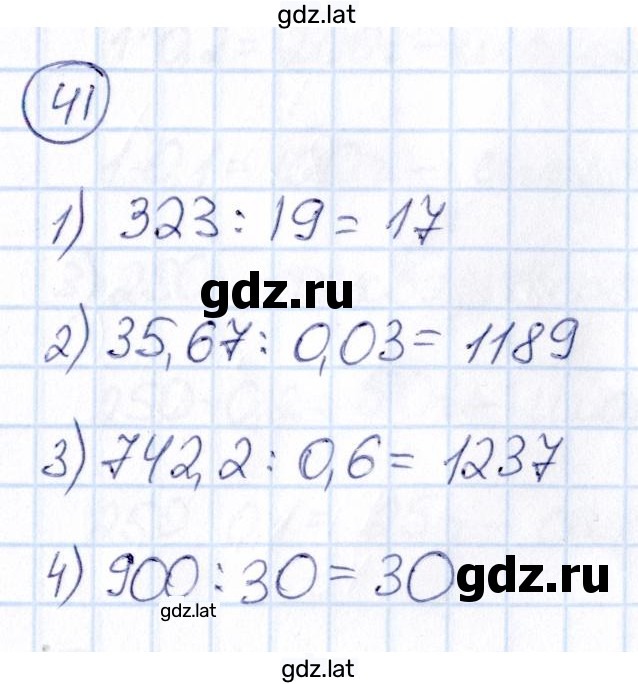 gdz.lat
41
1) 323 : 19 = 17
gdz.ru
2) 35,67 : 0,03 = 1189
3) 742,2 : 0,6 = 1237
4) 900 : 30 = 30
gdz.ru
gdz.lat
gdz.lat